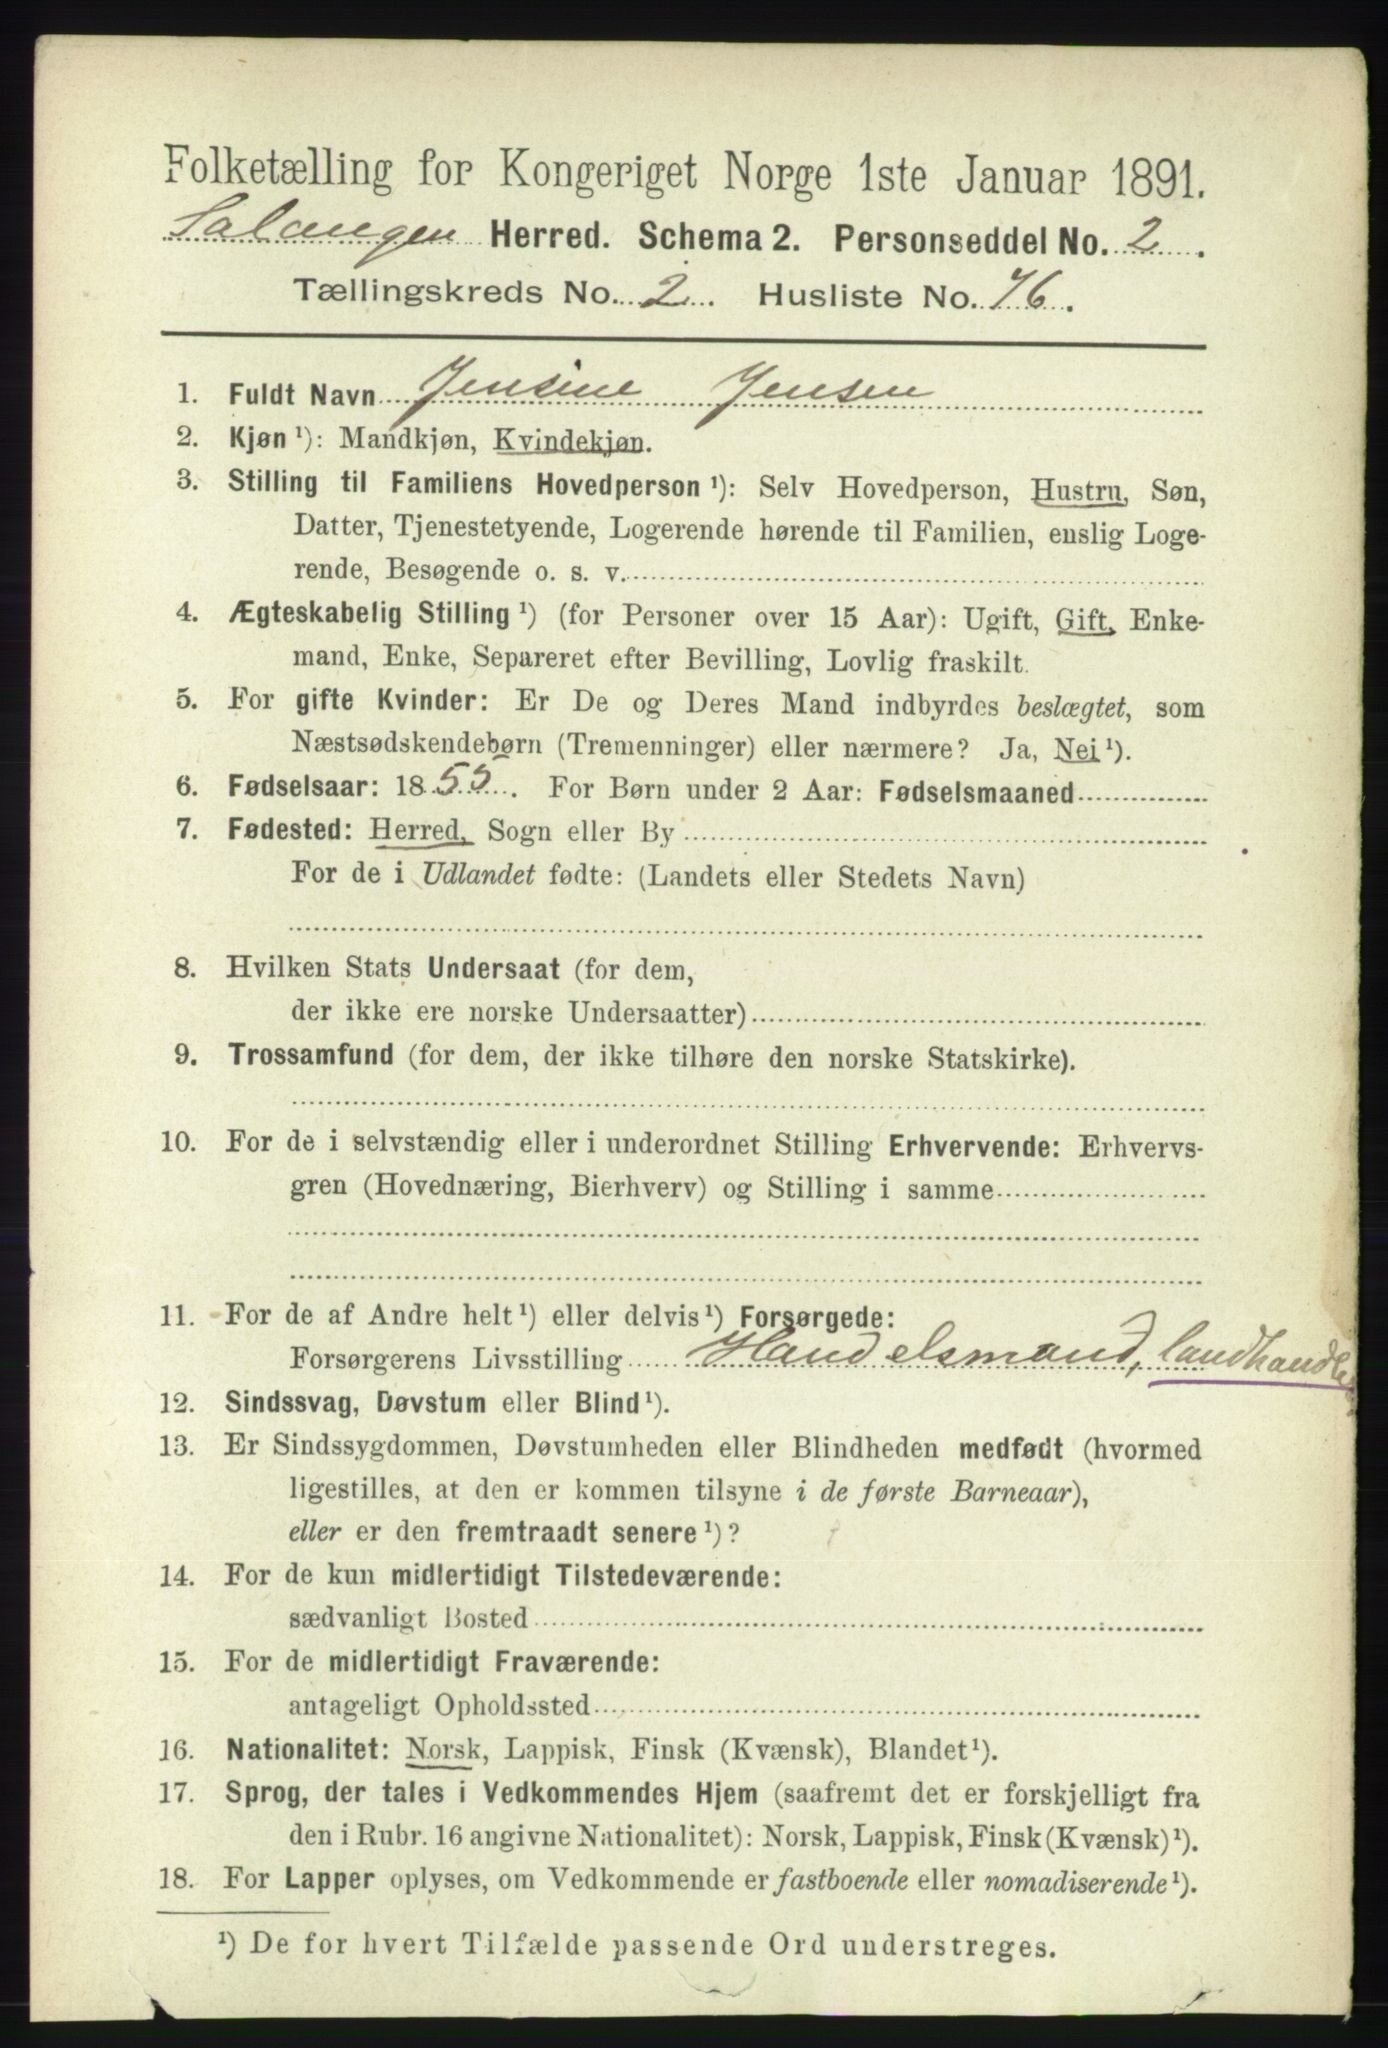 Folketælling for Kongeriget Norge 1ste Januar 1891.
Salangen Herred. Schema 2. Personseddel No. 2.
Tællingskreds No. 2. Husliste No. 76.
1. Fuldt Navn Jensine Jensen
2. Kjøn ¹): Mandkjøn, Kvindekjøn.
3. Stilling til Familiens Hovedperson ¹): Selv Hovedperson, Hustru, Søn,
Datter, Tjenestetyende, Logerende hørende til Familien, enslig Loge-
rende, Besøgende o. s. v.
4. Ægteskabelig Stilling ¹) (for Personer over 15 Aar): Ugift, Gift, Enke-
mand, Enke, Separeret efter Bevilling, Lovlig fraskilt.
5. For gifte Kvinder: Er De og Deres Mand indbyrdes beslægtet, som
Næstsødskendebørn (Tremenninger) eller nærmere? Ja, Nei ¹).
6. Fødselsaar: 1855. For Børn under 2 Aar: Fødselsmaaned
7. Fødested: Herred, Sogn eller By
For de i Udlandet fødte: (Landets eller Stedets Navn)
8. Hvilken Stats Undersaat (for dem,
der ikke ere norske Undersaatter)
9. Trossamfund (for dem, der ikke tilhøre den norske Statskirke).
10. For de i selvstændig eller i underordnet Stilling Erhvervende: Erhvervs-
gren (Hovednæring, Bierhverv) og Stilling i samme
11. For de af Andre helt ¹) eller delvis ¹) Forsørgede:
Forsørgerens Livsstilling Handelsmand, landhandler
12. Sindssvag, Døvstum eller Blind ¹).
13. Er Sindssygdommen, Døvstumheden eller Blindheden medfødt (hvormed
ligestilles, at den er kommen tilsyne i de første Barneaar),
eller er den fremtraadt senere ¹)?
14. For de kun midlertidigt Tilstedeværende:
sædvanligt Bosted
15. For de midlertidigt Fraværende:
antageligt Opholdssted
16. Nationalitet: Norsk, Lappisk, Finsk (Kvænsk), Blandet ¹).
17. Sprog, der tales i Vedkommendes Hjem (saafremt det er forskjelligt fra
den i Rubr. 16 angivne Nationalitet): Norsk, Lappisk, Finsk (Kvænsk) ¹).
18. For Lapper oplyses, om Vedkommende er fastboende eller nomadiserende ¹).
¹) De for hvert Tilfælde passende Ord understreges.